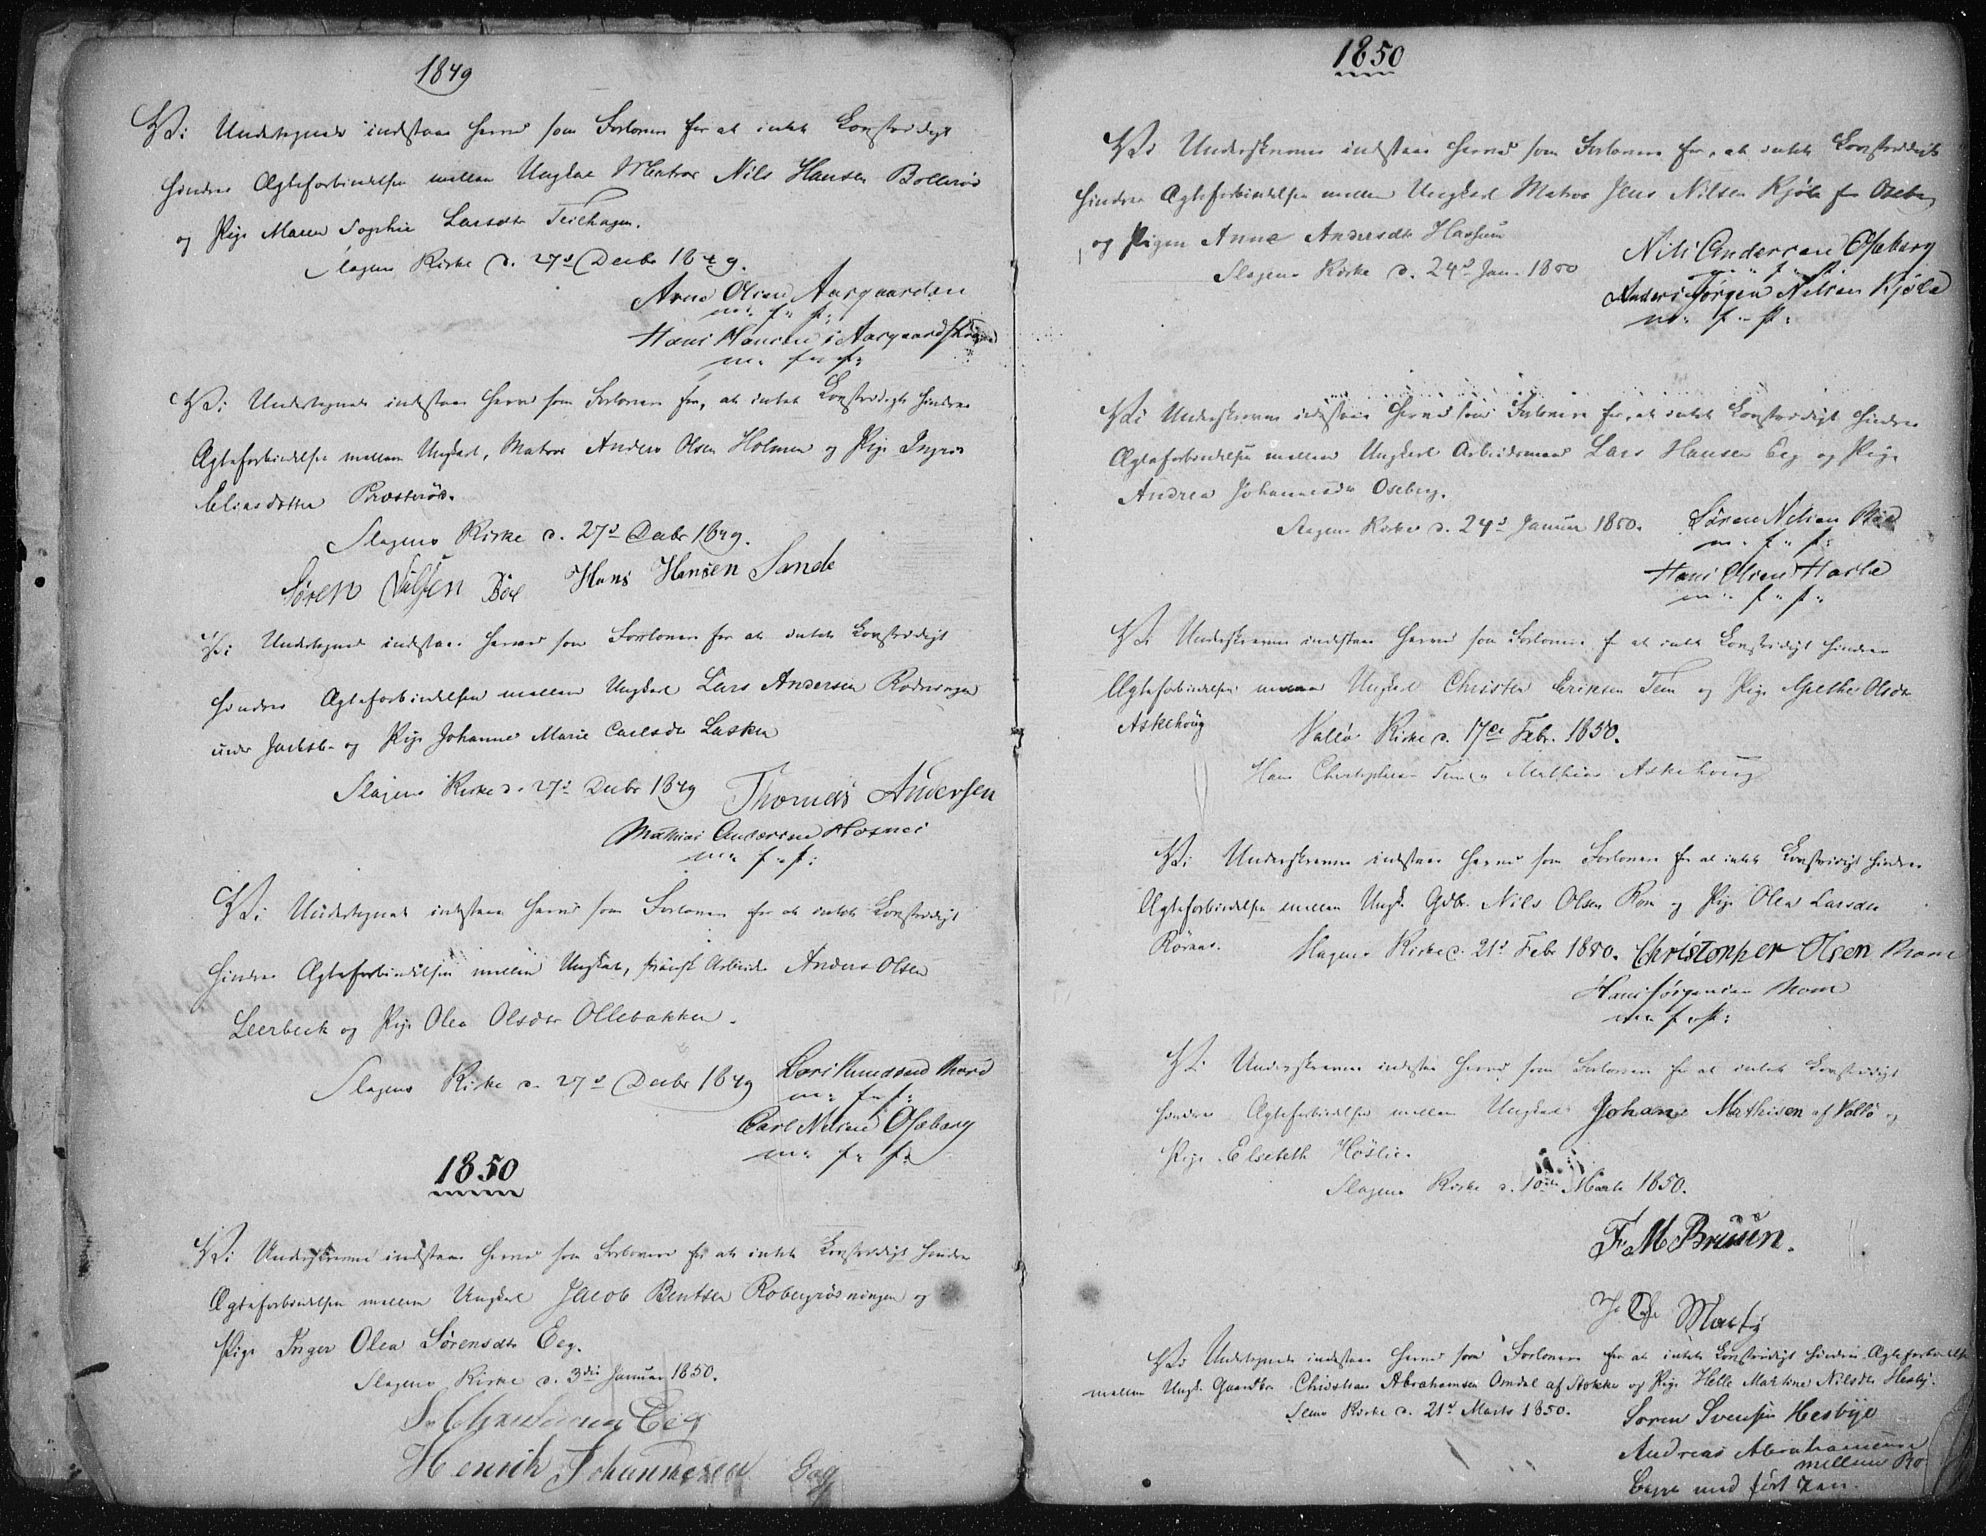 1849
Vi Undertegnede indestaae herved som Forlovere for at intet Lovstridigt
hindrer Ægteforbindelsen mellem Ungkarl Matros Nils Hansen Bollerød
og Pige Maren Sophie Larsdtr Teilhagen.
Slagens Kirke d. 27d Decbr 1849.
Arne Olsen Aasgaarden
m. f. P.
Hans Hansen i Aasgaard
m. f. P.
Vi Undertegnede indestaae herved som Forlovere for, at intet Lovstridigt hindrer
Ægteforbindelsen mellem Ungkarl, Matros Anders Olsen Holmen og Pige Inger
Eliasdatter Præsterød.
Slagens Kirke d. 27d Decbr 1849.
Søren Nilsen Bøe Hans Hansen Sande
Vi Undertegnede indestaae herved som Forlovere for at intet Lovstridigt
hindrer Ægteforbindelsen mellem Ungkarl Lars Andersen Rødningen
under Jarlsb. og Pige Johanne Marie Carlsdtr Lasken
Slagens Kirke d. 27d Decbr 1849 Thomas Andersen
Mathias Andersen
m. f. P.
Vi Undertegnede indestaae herved som Forlovere for at intet Lovstridigt
hindrer Ægteforbindelsen mellem Ungkarl, Arbeider Anders Olsen
Leerbeck og Pige Olea Olsdtr Ollebakken.
Slagens Kirke d. 27d Decbr 1849 Lars Knudsen
m. f. P.
Carl Nilsen Oseberg
m. f. P.
1850
Vi Underskrevne indestaae herved som Forlovere for at intet Lovstridigt hindrer
Ægteforbindelsen mellem Ungkarl Jacob Bentsen Robergrødningen og
Pige Inger Olea Sørensdtr Eeg.
Slagens Kirke d. 3die Januar 1850.
Christiansen Eeg
Henrik Johannesen
1850
Vi Underskrevne indestaae herved som Forlovere for, at intet Lovstridigt
hindrer Ægteforbindelsen mellem Ungkarl Matros Jens Nilsen Kjøle fra Oseberg
og Pigen Anne Andersdtr Hassum
Slagens Kirke d. 24d Jan. 1850
Nils Andersen Oseberg
m. f. P.
Anders Jørgen Nilsen Kjøle
m. f. P.
Vi Underskrevne indestaae herved som Forlovere for, at intet Lovstridigt hindrer
Ægteforbindelsen mellem Ungkarl Arbeidsmand Lars Hansen Eeg og Pige
Andrea Johannesdtr Oseberg.
Slagens Kirke d. 24d Januar 1850.
Søren Nilsen Bøe
m. f. P.
Hans Olsen Hasle
m. f. P.
Vi Underskrevne indestaae herved som Forlovere for at intet Lovstridigt hindrer
Ægteforbindelsen mellem Ungkarl Christen Eriksen Tem og Pige Olsdtr
Askehoug
Valløe Kirke d. 17de Febr. 1850.
Hans Christophersen Tem og Mathias Askehoug
Vi Underskrevne indestaae herved som Forlovere for at intet Lovstridigt hindrer
Ægteforbindelsen mellem Ungk. Gdbr. Nils Olsen Rom og Pige Olea Larsdtr
Rørnes.
Slagens Kirke d. 21d Febr 1850. Christopher Olsen
Hans Jørgensen Rom
m. f. P.
Vi Underskrevne indestaae herved som Forlovere for at intet Lovstridigt
hindrer Ægteforbindelsen mellem Ungkarl Johan Mathisen af Vallø og
Pige Elsebeth Høslie.
Slagens Kirke d. 10de Marts 1850.
F. M Bruun.
Vi Undertegnede indestaae herved som Forlovere for at intet Lovstridigt hindrer Ægteforbindelsen
mellem Ungk. Gaardbr. Christian Abrahamsen Omdal af Stokke og Pige Helle Martine Nilsdtr Hesby.
Sems Kirke d. 21d Marts 1850.
Søren Svensen Hesbye
Andreas Abrahamsen
mellem
med ført Pen.